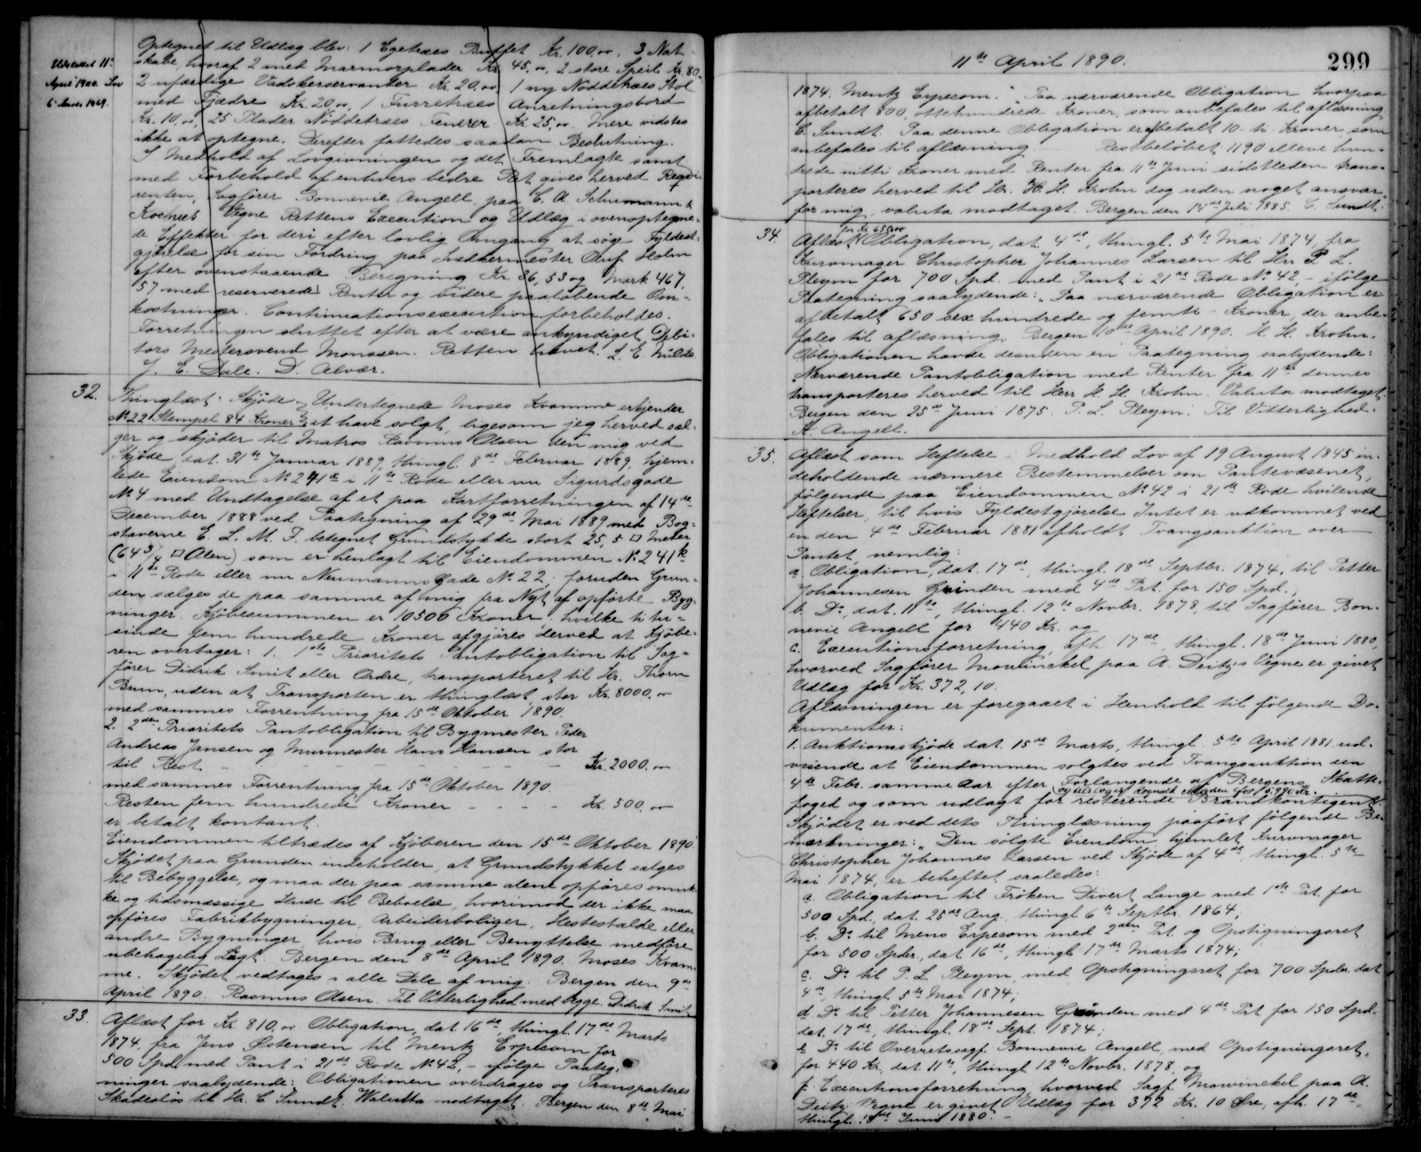 Optegnet til Udlæg blev: 1 Egetræes Buffet Kr. 100,00, 3 Nat-
skabe, hvoraf 2 med Marmorplader Kr. 45,00, 2 store Speil Kr. 80,
2 ufærdige Vadskeservanter Kr. 20,00, 1 ny Nøddetræes Stol
med Fjædre Kr. 20,00, 1 Furretræes Anretningsbord
Kr. 10,00, 25 Plader Nøddetræes Fenerer Kr. 25,00. Mere vidstes
ikke at optegne. Derefter fattedes saadan Beslutning.
I Medhold af Lovgivningen og det Fremlagte samt
med Forbehold af enhvers bedre Ret gives herved Reqvi-
renten, Sagfører Bonnevie Angell, paa C. A. Schumann &
Kochs Vegne Rettens Execution og Udlæg i ovenoptegne-
de Effekter for deri efter lovlig Omgang at søge Fyldest-
gjørelse for sin Fordring paa Snedkermester Oluf Holm
efter ovenstaaende Beregning Kr. 36,53 og Mark 467.
57 med reserverede Renter og videre paaløbende Om-
kostninger. Continuationsexecution forbeholdes.
Forretningen sluttet efter at være ankyndiget Debi-
tors Mestersvend Monssen. Retten hævet. L. E. Milde
J. E. Dale. D. Alvær.
Udslettet 11te
April 1900. Lov
6 Marts 1869.
32. Thinglæst: Skjøde. Undertegnede Moses Kvamme erkjender
No 22 Stempel 84 Kroner at have solgt, ligesom jeg herved sæl-
ger og skjøder til Matros Rasmus Olsen den mig ved
Skjøde dat. 31te Januar 1889, thingl. 8de Februar 1889, hjem-
lede Eiendom No 241h i 11te Rode eller nu Sigurdsgade
No 4 med Undtagelse af et paa Kartforretningen af 14de
December 1888 ved Paategning af 29de Mai 1889 med Bog-
staverne E. L. M. F. betegnet Grundstykke stort 25,5 □ Meter
(64 3/4 □ Alen) som er henlagt til Eiendommen No 241k
i 11te Rode eller nu Neumannsgade No 22, foruden Grun-
den sælges de paa samme af mig fra Nyt af opførte Byg-
ninger. Kjøbesummen er 10500 Kroner hvilke ti tu-
sinde fem hundrede Kroner afgjøres derved at Kjøbe-
ren overtager: 1. 1ste Prioritets Pantobligation til Sag-
fører Didrik Smit eller Ordre, transporteret til Hr. Thorn
Bum, uden at Transporten er thinglæst, stor Kr. 8000,00
med sammes Forrentning fra 15de Oktober 1890.
2. 2den Prioritets Pantobligation til Bygmester Peder
Andreas Jansen og Murmester Hans Hansen stor
til Rest - - - - - - - - Kr. 2000,00
med sammes Forrentning fra 15de Oktober 1890.
Resten fem hundrede Kroner - - - - Kr. 500,00
er betalt kontant.
Eiendommen tiltrædes af Kjøberen den 15de Oktober 1890
Skjødet paa Grunden indeholder, at Grundstykket sælges
til Bebyggelse, og maa der paa samme alene opføres smuk-
ke og tidsmæssige Huse til Beboelse, hvorimod der ikke maa
opføres Fabrikbygninger, Arbeiderboliger, Hestestalde eller
andre Bygninger, hvis Brug eller Benyttelse medføre
ubehagelig Lugt. Bergen den 8de April 1890. Moses Kvam-
me. Skjødet vedtages i alle Dele af mig. Bergen den 9de
April 1890. Rasmus Olsen. Til Vitterlighed med Bygge. Didrik Smit
33. Aflæst for Kr. 810,00 Obligation, dat. 16de, thingl. 17de Marts
1874, fra Jens Østensen til Mentz Erpecom for
500 Spd. med Pant i 21de Rode No 42, - ifølge Paateg-
ninger saalydende: Obligationen overdrages og Transporteres
Skadesløs til Hr. C. Sundt. Valuta modtaget. Bergen den 8de Mai
11te April 1890.
299
1874. Mentz Erpecom. " Paa nærværende Obligation hvorpaa
afbetalt 800, ottehundrede Kroner, som anbefales til aflæsning
C. Sundt. Paa denne Obligation er afbetalt 10 ti Kroner, som
anbefales til aflæsning Restbeløbet 1190 elleve hun-
drede nitti Kroner med Renter fra 11te Juni sidstleden trans-
porteres herved til Hr. H. H. Krohn dog uden noget ansvar
for mig, valuta modtaget. Bergen den 14de Juli 1885. C. Sundt.
for Kr. 650,00
34. Aflæst Obligation, dat. 4de, thingl. 5te Mai 1874, fra
Kurvmager Christopher Johannes Larsen til Hr. P. L.
Pleym for 700 Spd. med Pant i 21de Rode No 42, - ifølge
Paategning saalydende: "Paa nærværende Obligation er
afbetalt 650 sex hundrede og femti Kroner, der anbe-
fales til aflæsning. Bergen 10de April 1890. H. H. Krohn.
Obligationen havde desuden en Paategning saalydende:
Nærværende Pantobligation med Renter fra 11te dennes
transporteres herved til Herr H. H. Krohn. Valuta modtaget
Bergen den 25de Juni 1875. P. L. Pleym. Til Vitterlighed:
A. Angell.
35. Aflæst som Heftelse i Medhold Lov af 19 August 1845 in-
deholdende nærmere Bestemmelser om Pantevæsenet,
følgende paa Eiendommen No 42 i 21de Rode hvilende
Heftelser, til hvis Fyldestgjørelse Intet er udkommet ved
en den 4de Februar 1881 afholdt Tvangsauktion over
Pantet, nemlig:
a. Obligation, dat. 17de, thingl. 18de Septbr. 1874, til Petter
Johannesen Grinden med 4de Prt. for 150 Spd.,
b. Do, dat. 11te, thingl. 12te Novbr. 1878, til Sagfører Bon-
nevie Angell for 440 Kr. og
c. Executionsforretning, afh. 17de, thingl. 18de Juni 1880,
hvorved Sagfører Mowinckel paa A. Deitzs Vegne er givet
Udlæg for Kr. 372,10.
Aflæsningen er foregaaet i Henhold til følgende Do-
kumenter:
1. Auktionsskjøde dat. 15de Marts, thingl. 5te April 1881 ud-
visende at Eiendommen solgtes ved Tvangsauktion den
4de Febr. samme Aar efter Forlangende af Bergens Skatte-
foged og som udlagt for resterende Brandkontingent.
Skjødet er ved dets Thinglæsning paaført følgende Be-
mærkninger: "Den solgte Eiendom, hjemlet Kurvmager
Christopher Johannes Larsen ved Skjøde af 4de, thingl. 5te
Mai 1874, er beheftet saaledes:
a. Obligation til Frøken Divert Lange med 1ste Prt. for
500 Spd., dat. 25de Aug. thingl. 6te Septbr. 1864;
b. Do til Mens Erpecom med 2den Prt. og Opstigningsret
for 500 Spdr., dat. 16de, thingl. 17de Marts 1874;
c. Do til P. L. Pleym, med Opstigningsret for 700 Spdr. dat.
4de, thingl. 5te Mai 1874;
d. Do til Petter Johannesen Grinden med 4de Prt. for 150 Spd.
dat. 17de, thingl. 18de Sept. 1874;
e. Do til Overretssagf. Bonnevie Angell, med Opstigningsret,
for 440 Kr., dat. 11te, thingl. 12te Novbr. 1878, og
f. Executionsforretning, hvorved Sagf. Mowinckel paa A.
Deitz Vegne er givet Udlæg for 372 Kr. 10 Øre, afh. 17de,
thingl. 18de Juni 1880. -